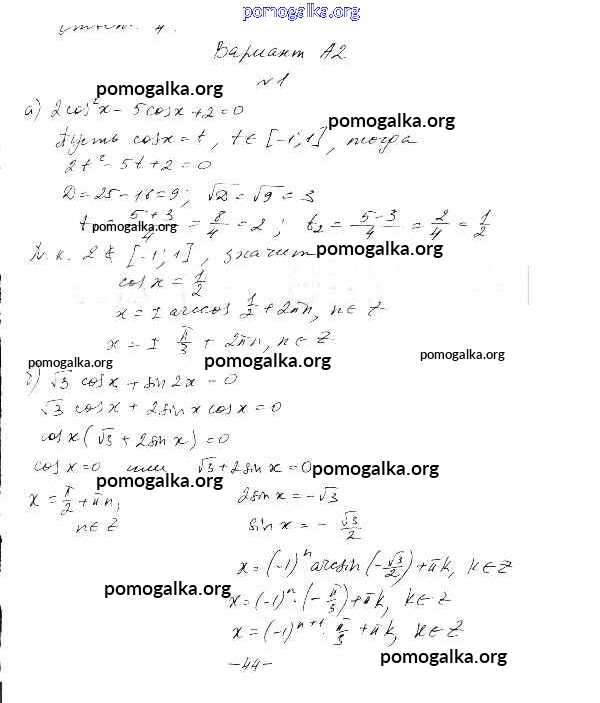 pomogalka.org
Вариант А2
pomogalka.org
№1
а) 2cos²x - 5cosx + 2 = 0
pomogalka.org
Пусть cosx = t, t ∈ [-1;1], тогда
2t² - 5t + 2 = 0
D = 25 - 16 = 9; √D = √9 = 3
t = (5+3)/4 = 8/4 = 2; t₂ = (5-3)/4 = 2/4 = 1/2
pomogalka.org
Т.к. 2 ∉ [-1;1], значит pomogalka.org
cos x = 1/2
x = ± arccos 1/2 + 2πn, n ∈ Z
x = ± π/3 + 2πn, n ∈ Z
pomogalka.org pomogalka.org pomogalka.org
б) √3 cosx + sin 2x = 0
√3 cosx + 2sin x cosx = 0
cosx(√3 + 2sin x) = 0
cosx = 0 или √3 + 2sin x = 0 pomogalka.org
pomogalka.org
x = π/2 + πn, 2sin x = -√3
n ∈ Z sin x = - √3/2
x = (-1)ⁿ arcsin(-√3/2) + πk, k ∈ Z
pomogalka.org
x = (-1)ⁿ · (-π/3) + πk, k ∈ Z
x = (-1)ⁿ⁺¹ · π/3 + πk, k ∈ Z
-44-
pomogalka.org